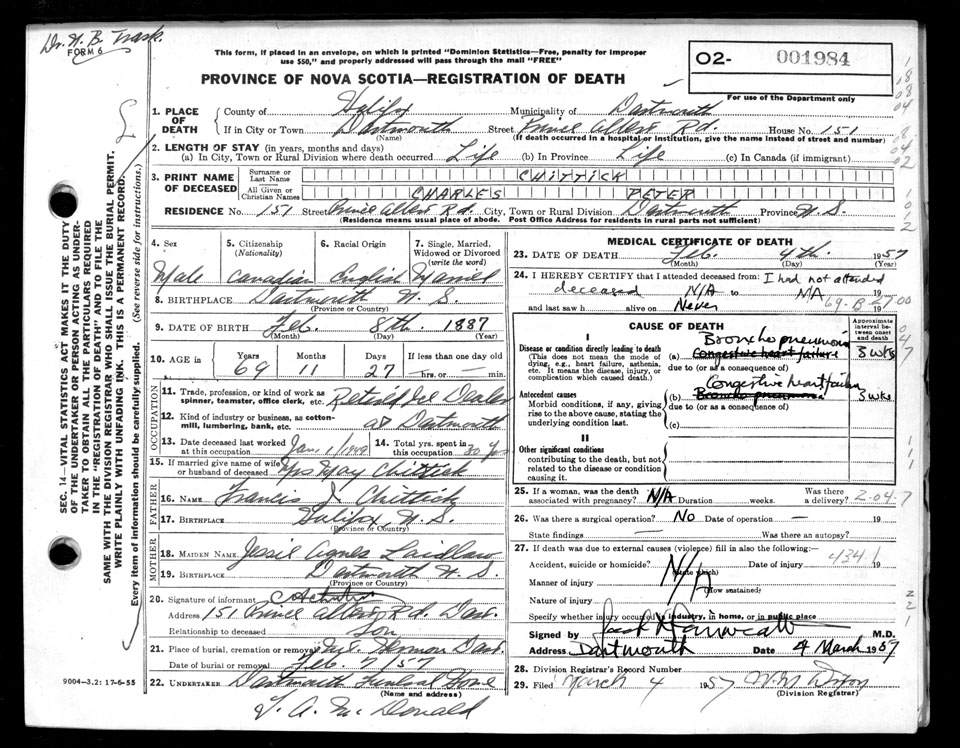 Dr. H. B. Trask.
FORM 6
This form, if placed in an envelope, on which is printed "Dominion Statistics—Free, penalty for improper
use $50," and properly addressed will pass through the mail "FREE"
PROVINCE OF NOVA SCOTIA—REGISTRATION OF DEATH
O2- 001984
For use of the Department only
1. PLACE OF DEATH County of Halifax Municipality of Dartmouth
If in City or Town Dartmouth Street Prince Albert Rd. House No. 151
(Name) (If death occurred in a hospital or institution, give the name instead of street and number)
2. LENGTH OF STAY (in years, months and days)
(a) In City, Town or Rural Division where death occurred Life (b) In Province Life (c) In Canada (if immigrant)
3. PRINT NAME OF DECEASED Surname or Last Name CHITTICK
All Given or Christian Names CHARLES PETER
RESIDENCE No. 151 Street Prince Albert Rd. City, Town or Rural Division Dartmouth Province N.S.
(Residence means usual place of abode. Post Office Address for residents in rural parts not sufficient)
4. Sex 5. Citizenship (Nationality) 6. Racial Origin 7. Single, Married, Widowed or Divorced (write the word)
Male Canadian English Married
8. BIRTHPLACE Dartmouth N.S.
(Province or Country)
9. DATE OF BIRTH Feb. 8th. 1887
(Month) (Day) (Year)
10. AGE in Years Months Days If less than one day old
69 11 27 hrs. or min.
OCCUPATION
11. Trade, profession, or kind of work as spinner, teamster, office clerk, etc. Retired Ice Dealer
12. Kind of industry or business, as cotton-mill, lumbering, bank, etc. at Dartmouth
13. Date deceased last worked at this occupation Jan. 1/1949 14. Total yrs. spent in this occupation 30 yrs
15. If married give name of wife or husband of deceased Mrs May Chittick
FATHER
16. NAME Francis J. Chittick
17. BIRTHPLACE Halifax N.S.
(Province or Country)
MOTHER
18. MAIDEN NAME Jessie Agnes Laidlaw
19. BIRTHPLACE Dartmouth N.S.
(Province or Country)
20. Signature of informant
Address 151 Prince Albert Rd. Dart.
Relationship to deceased Son
21. Place of burial, cremation or removal Mt. Hermon Dart.
Date of burial or removal Feb. 7/57
22. UNDERTAKER Dartmouth Funeral Home
(Name and address)
9004-3.2: 17-6-55
MEDICAL CERTIFICATE OF DEATH
23. DATE OF DEATH Feb. 4th. 1957
(Month) (Day) (Year)
24. I HEREBY CERTIFY that I attended deceased from: I had not attended
deceased N/A to N/A 19
and last saw h alive on Never 19
69-B-27.00
CAUSE OF DEATH
Approximate interval between onset and death
Disease or condition directly leading to death
(This does not mean the mode of dying, e.g., heart failure, asthenia, etc. It means the disease, injury, or complication which caused death.)
Broncho pneumonia
(a) Congestive heart failure 3 wks
due to (or as a consequence of)
Congestive heart failure
Antecedent causes (b) Broncho pneumonia 3 wks
Morbid conditions, if any, giving rise to the above cause, stating the underlying condition last.
due to (or as a consequence of)
(c)
II
Other significant conditions
contributing to the death, but not related to the disease or condition causing it.
25. If a woman, was the death associated with pregnancy? N/A Duration weeks. Was there a delivery?
2-04-7
26. Was there a surgical operation? No Date of operation — 19
State findings — Was there an autopsy?
27. If death was due to external causes (violence) fill in also the following:—
Accident, suicide or homicide? Date of injury 19
434.1
Manner of injury N/A
(How sustained)
Nature of injury
Specify whether injury occurred in industry, in home, or in public place
Signed by M.D.
Address Dartmouth Date 4 March 1957
28. Division Registrar's Record Number
29. Filed March 4 1957
(Division Registrar)
J. A. Mc Donald
SEC. 14—VITAL STATISTICS ACT MAKES IT THE DUTY
OF THE UNDERTAKER OR PERSON ACTING AS UNDER-
TAKER TO OBTAIN ALL THE PARTICULARS REQUIRED
IN THE "REGISTRATION OF DEATH" AND TO FILE THE
SAME WITH THE DIVISION REGISTRAR WHO SHALL ISSUE THE BURIAL PERMIT.
WRITE PLAINLY WITH UNFADING INK. THIS IS A PERMANENT RECORD.
Every item of information should be carefully supplied. (See reverse side for instructions.)